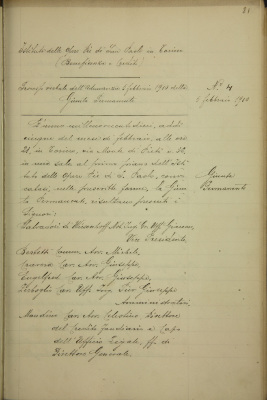 81
Istituto delle Opere Pie di San Paolo in Torino
(Beneficenza e Credito)
Processo verbale dell'adunanza 5 febbraio 1910 della
Giunta Permanente
N. 4
5 febbraio 1910
L'anno millenovecentodieci, addì
cinque del mese di febbraio, alle ore
in Torino, via Monte di Pietà n. 32,
in una sala al primo piano dell'Isti
tuto delle Opere Pie di S. Paolo, convo
catasi, nelle prescritte forme, la Giun
ta Permanente, risultano presenti i
Signori:
Giunta
Permanente
Vice Presidente
Avv. Michele,
Cav. Avv. Giuseppe,
Cav. Avv. Giuseppe,
Cav. Uff. Ing. Giuseppe
Amministratori
Cav. Avv. Celestino, Direttore
del Credito Fondiario e Capo
dell'Ufficio Legale, ff. di
Direttore Generale